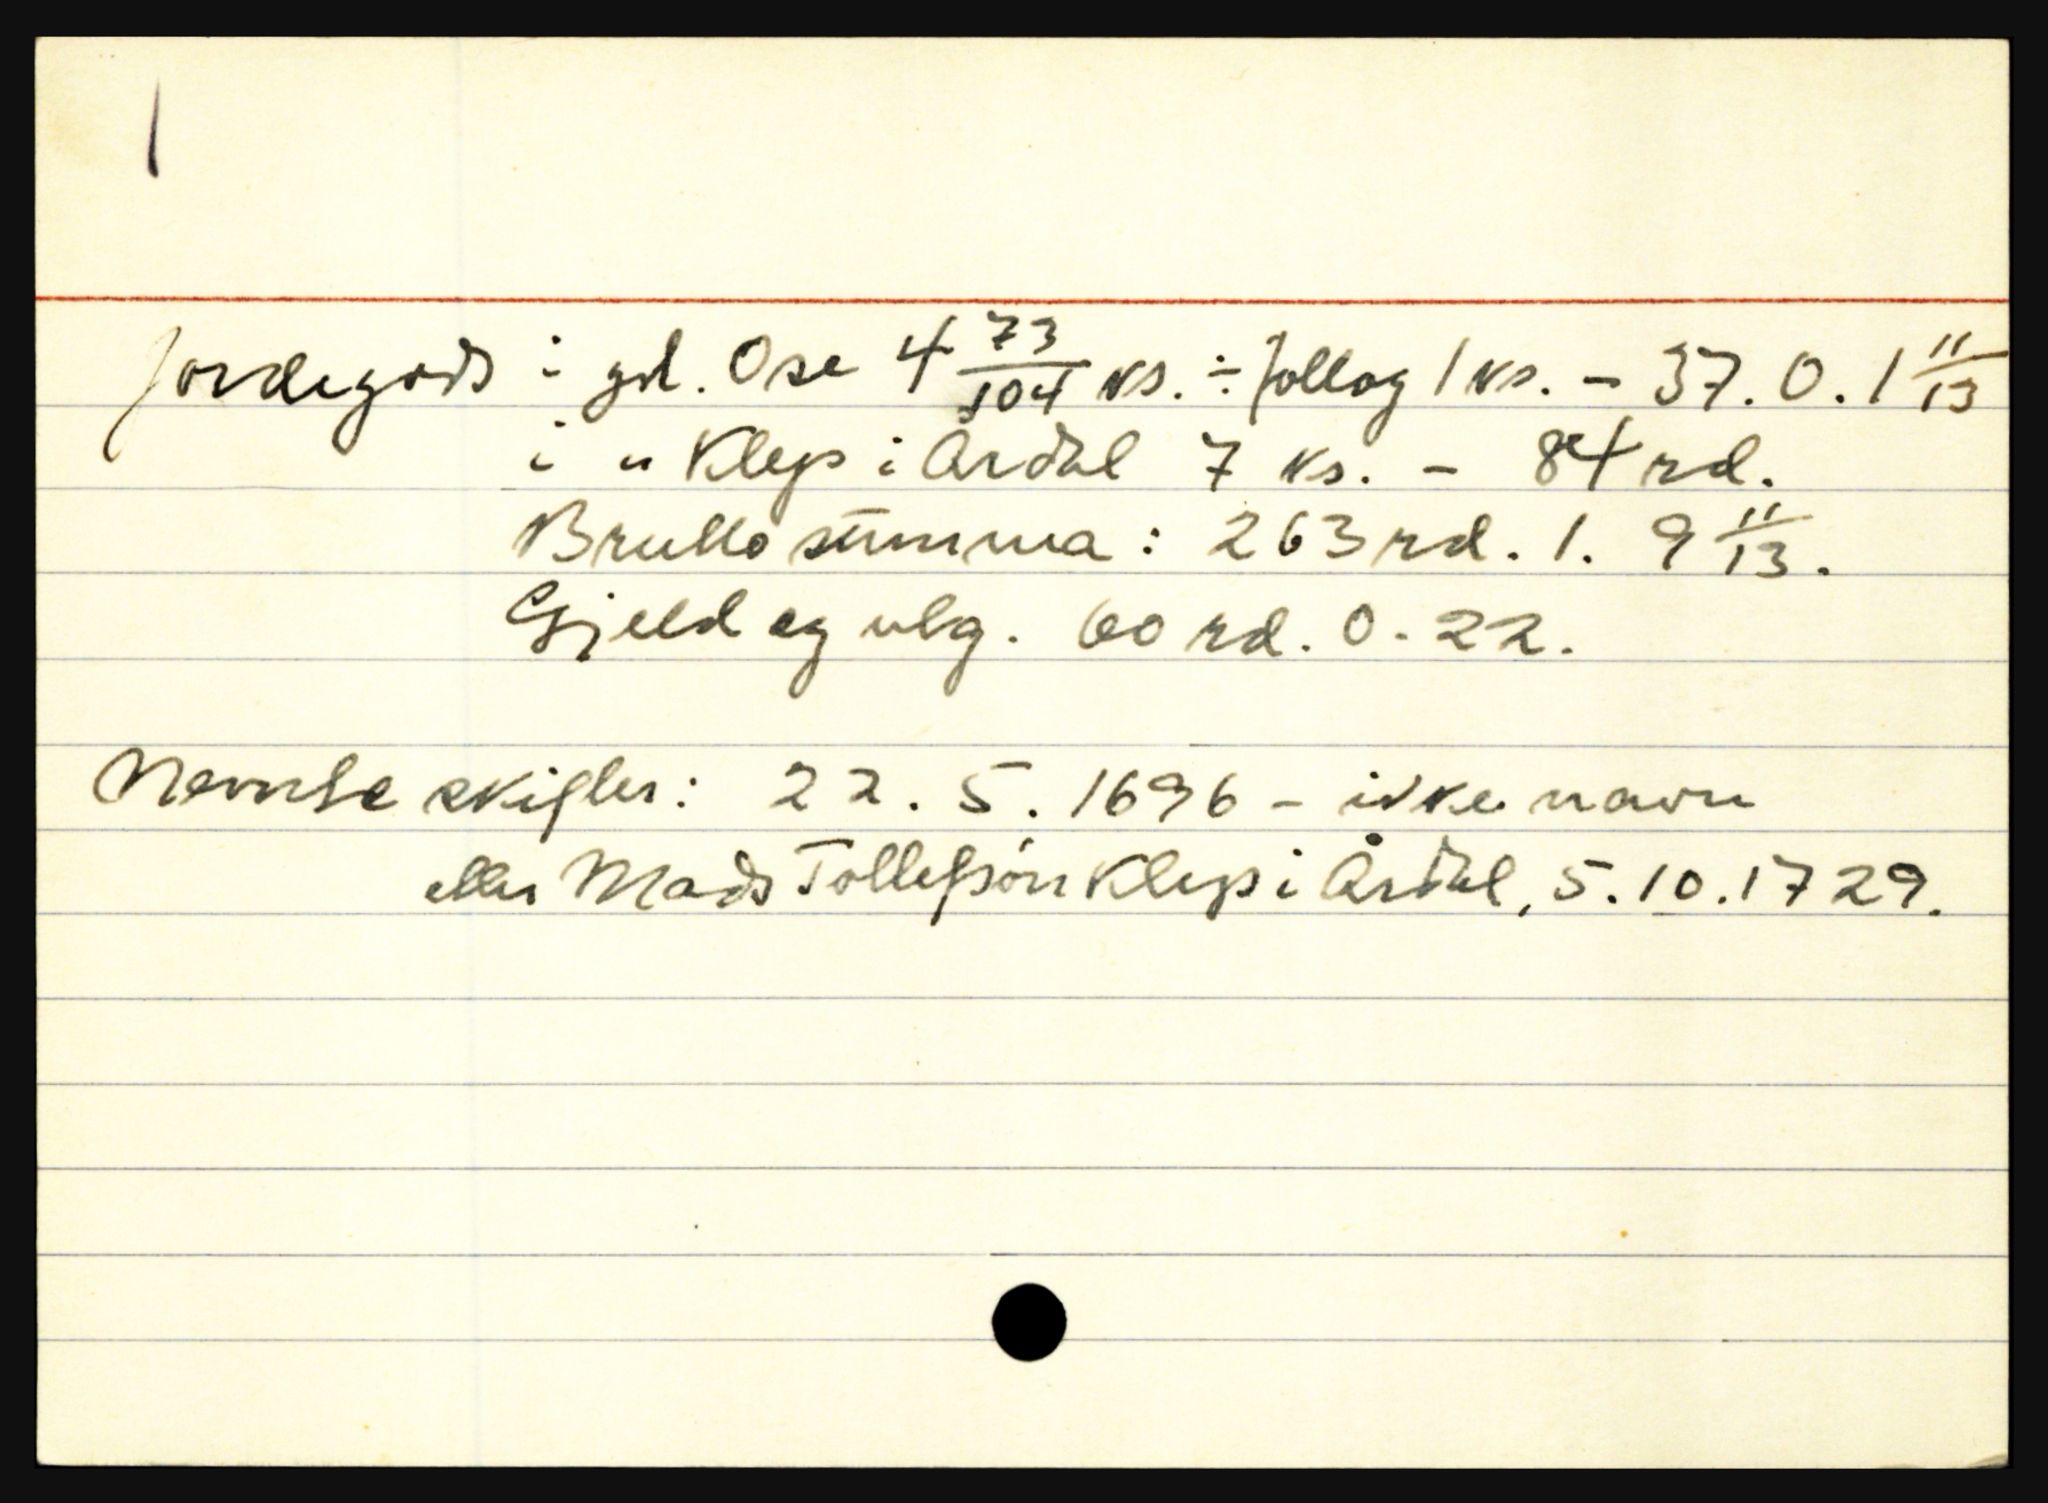 Jordegods i gd. Ose 4 73/104 ks. ÷ follog 1 ks. - 37. 0. 1 11/13
i " Klep i Årdal 7 ks. - 84 rd.
Brutto summa: 263 rd. 1. 9 11/13.
Gjeld og utg. 60 rd. 0-22.
Nevnte skifter: 22. 5. 1696 - ikke navn
etter Mads Tollefsøn Klep i Årdal, 5.10.1729.